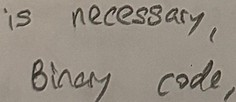 is necessary,
Binary code,